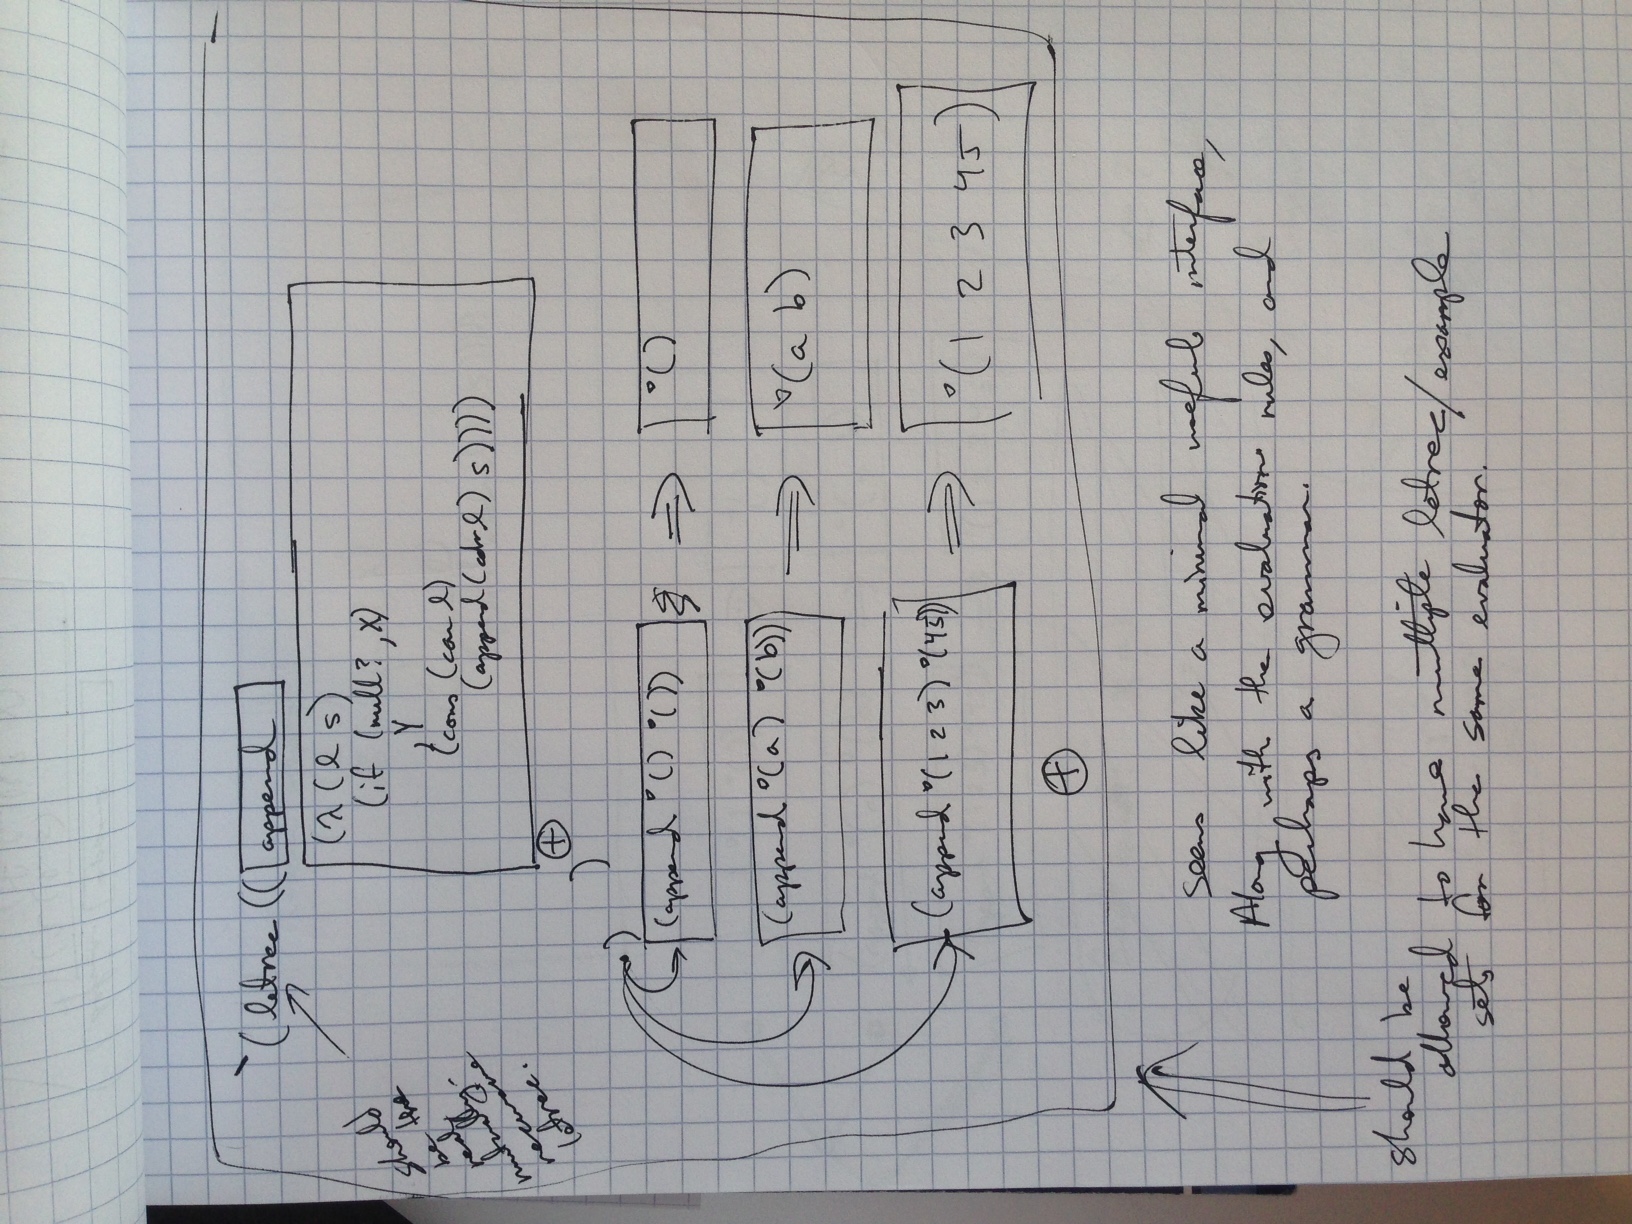 `(letrec ((append
(λ (l s)
(if (null? ,X)
,Y
(cons (car l)
(append (cdr l) s))))
⊕
)
)
should
be the
real
mutually-
recursive
letrec.
(append °() °()) ⇒ °()
(append °(a) °(b)) ⇒ °(a b)
(append °(1 2 3) °(4 5)) ⇒ °(1 2 3 4 5)
⊕
seems like a minimal useful interface,
Along with the evaluation rules, and
perhaps a grammar.
should be
allowed to have multiple letrec/example
sets for the same evaluator.